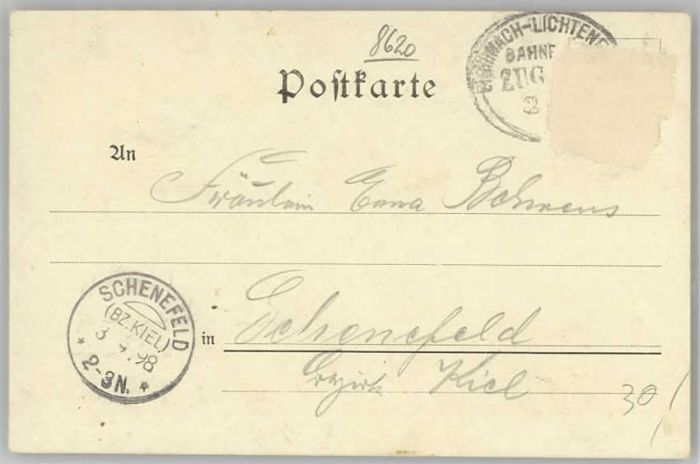 8620
EISENACH-LICHTENF
BAHNP
ZUG
Postkarte
An
Fräulein Emma Behrens
SCHENEFELD
(BZ. KIEL)
3 4. 98
* 2-3N. *
in Schenefeld
Bezirk Kiel
30